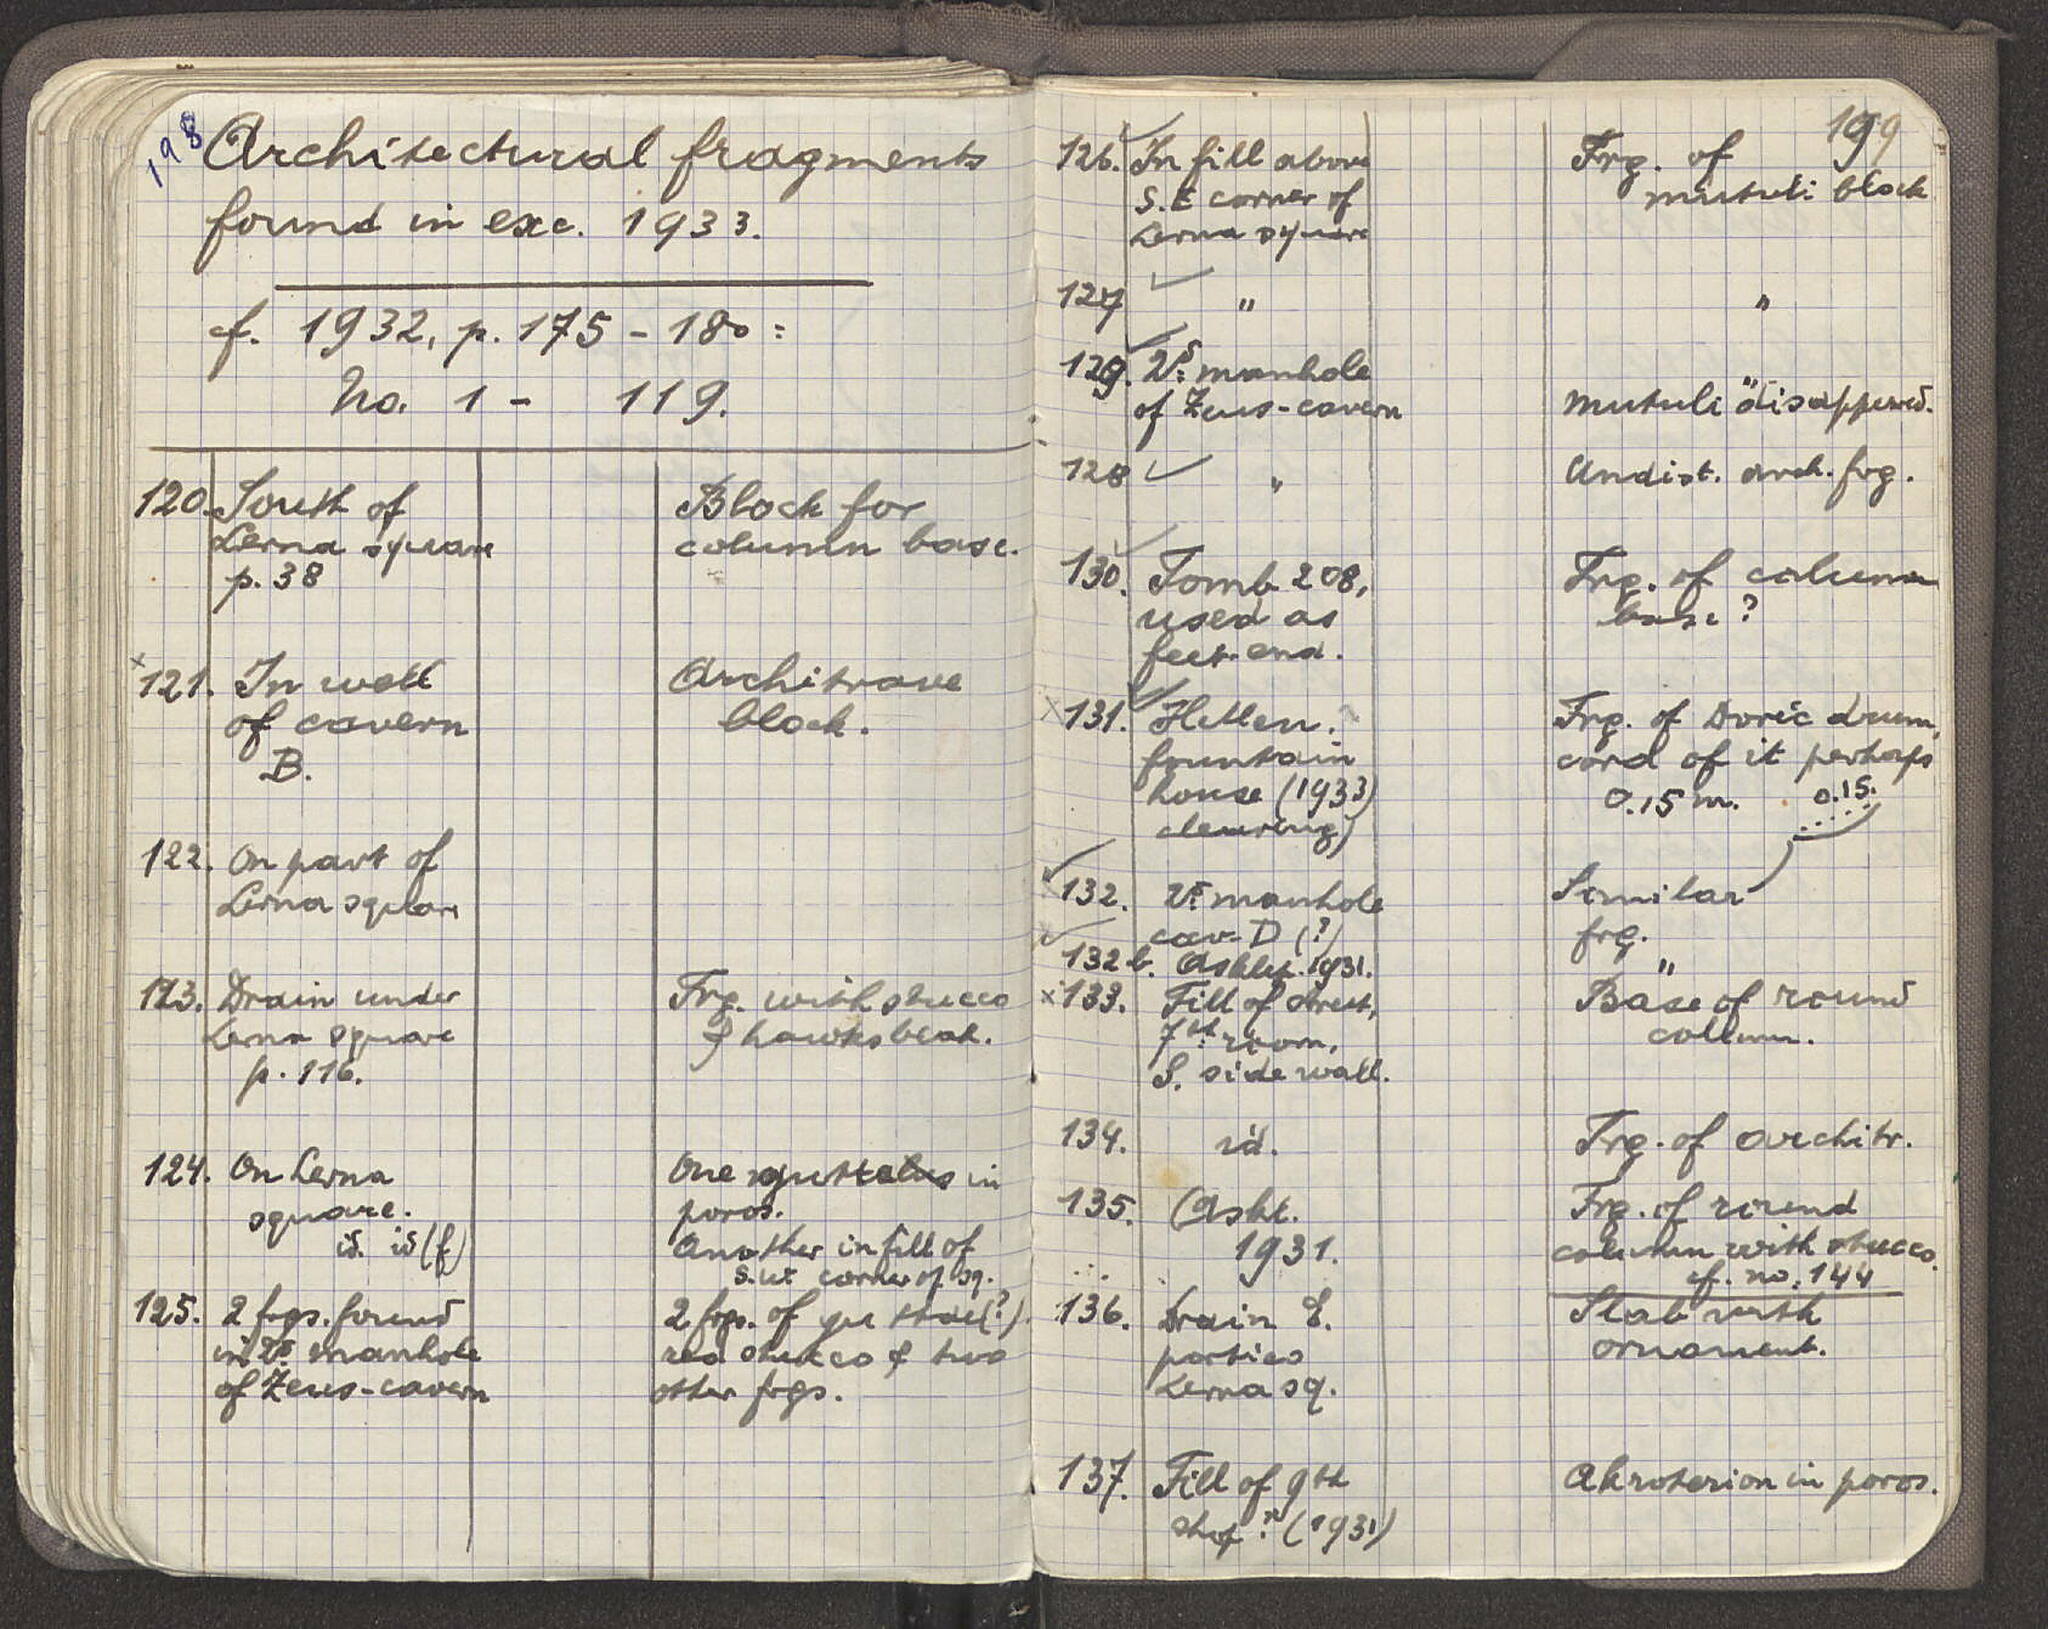 198
Architectural fragments
found in exc. 1933.
cf. 1932, p. 175 - 180 :
No. 1 - 119.
120. South of
Lerna square
p. 38
Block for
column base.
x 121. In wall
of cavern
B.
Architrave
block.
122. On part of
Lerna square
123. Drain under
Lerna square
p. 116.
Frg. with stucco
& hawksbeak.
124. On Lerna
square.
id. id (f)
One in
poros.
Another in fill of
corner of sq.
125. 2 frgs. found
in manhole
of Zeus-cavern
2 frgs. of (?)
red stucco & two
other frgs.
199
126. In fill above
S.E corner of
Lerna square
Frg. of
mutuli block
127 "
"
129. manhole
of Zeus-cavern
"
mutuli disappeared.
128 "
Undist. arch. frg.
130. Tomb 208,
used as
feet-end.
Frg. of column
base ?
x 131. Hellen.
fountain
house (1933)
clearing)
Frg. of Doric drum,
cord of it perhaps
0.15 m. 0.15.
x 132. manhole
cav. D (?)
Similar
frg.
132 b. Asklep. 1931.
"
x 133. Fill of street,
7th room,
S. side wall.
Base of round
column.
134. id.
Frg. of architr.
135. (Askl.
1931.
Frg. of round
column with stucco.
cf. no. 144
136. Drain E.
portico
Lerna sq.
Slab with
ornament.
137. Fill of 9th
shop ? (1931)
Akroterion in poros.